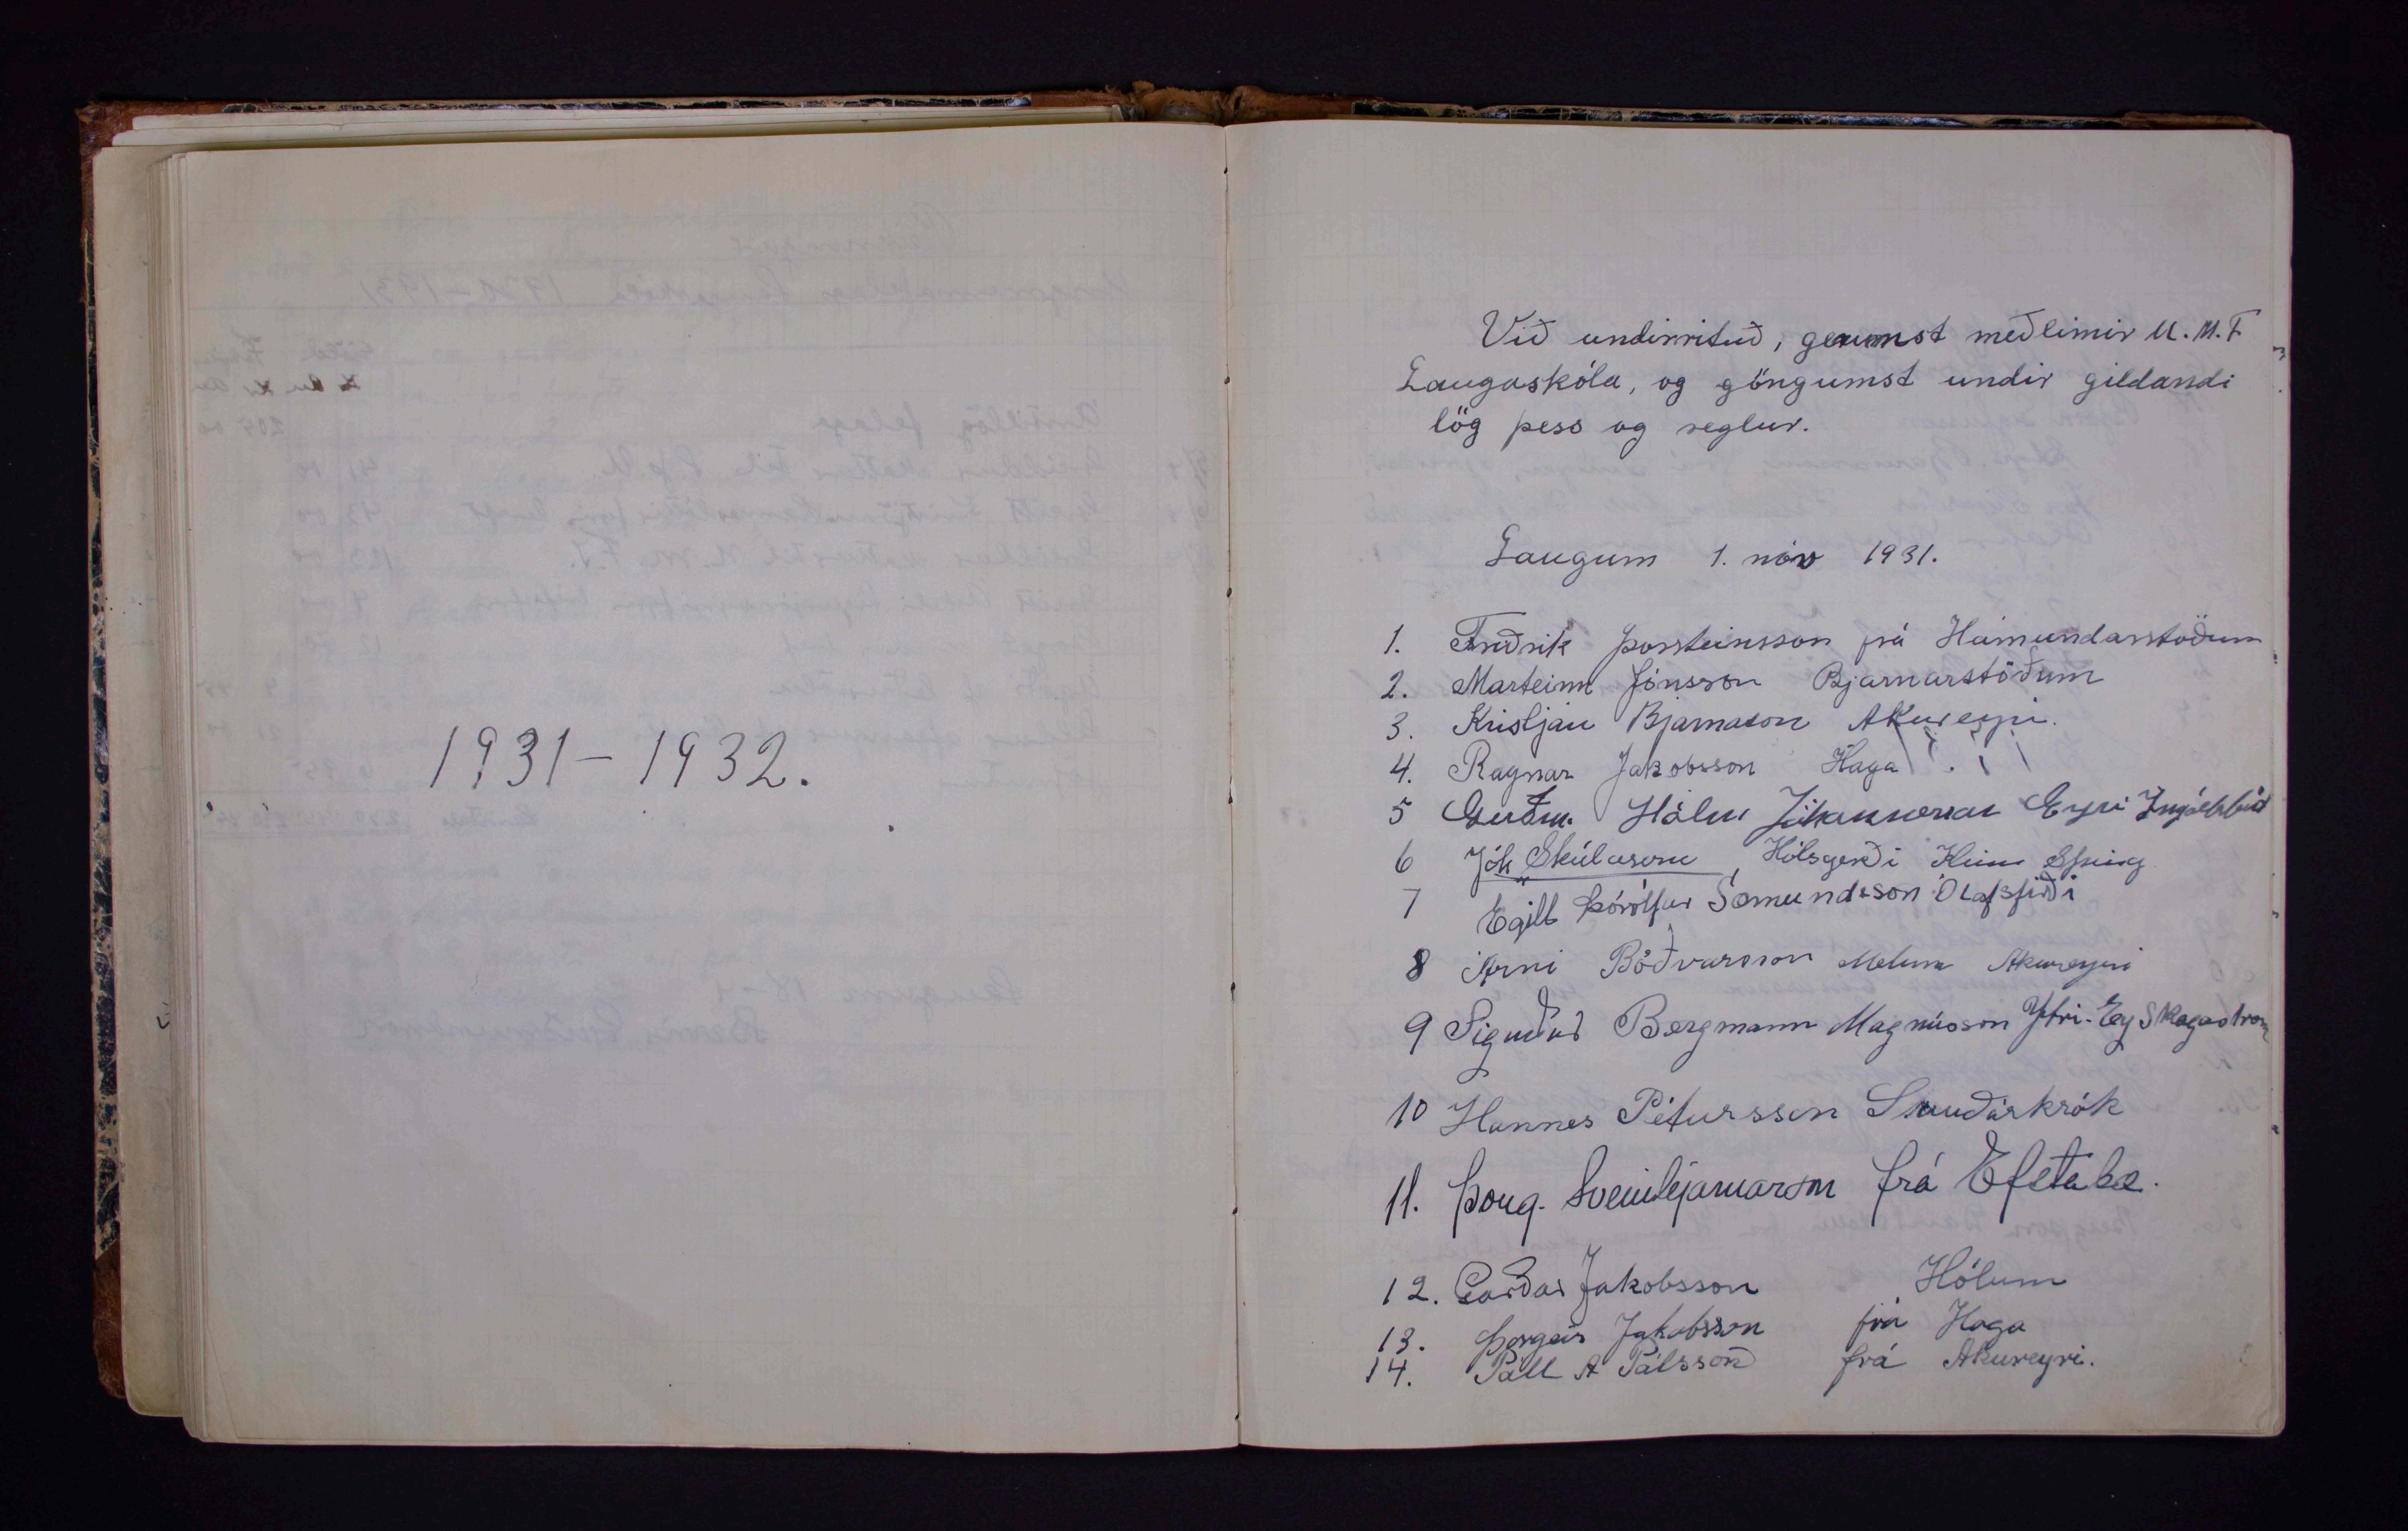 1931 - 1932.
Við undirrituð, gerumst meðlimir U. M. F
Laugaskóla, og göngumst undir gildandi
lög þess og reglur.
Laugum 1. nóv 1931.
1. Friðrik Þorsteinsson frá Hámundarstöðum
2. Marteinn Jónsson Bjarnarstöðum
3. Kristján Bjarnason Akureyri.
4. Ragnar Jakobsson Haga.
5 Guðm. Hólm Eyri
6 Jóh. Skúlason, Hólsgerði
7 Egill Þórólfur Sæmundsson Ólafsfirði
8 Árni Böðvarsson Melum Akureyri
9 Sigurður Bergmann Magnússon Ytri-Ey Skagaströnd
10 Hannes Pétursson Sauðárkrók
11. Þorg. Sveinbjarnarson frá Efstabæ.
12. Garðar Jakobsson Hólum
13. Þorgeir Jakobsson frá Haga
14. Páll A Pálsson frá Akureyri.